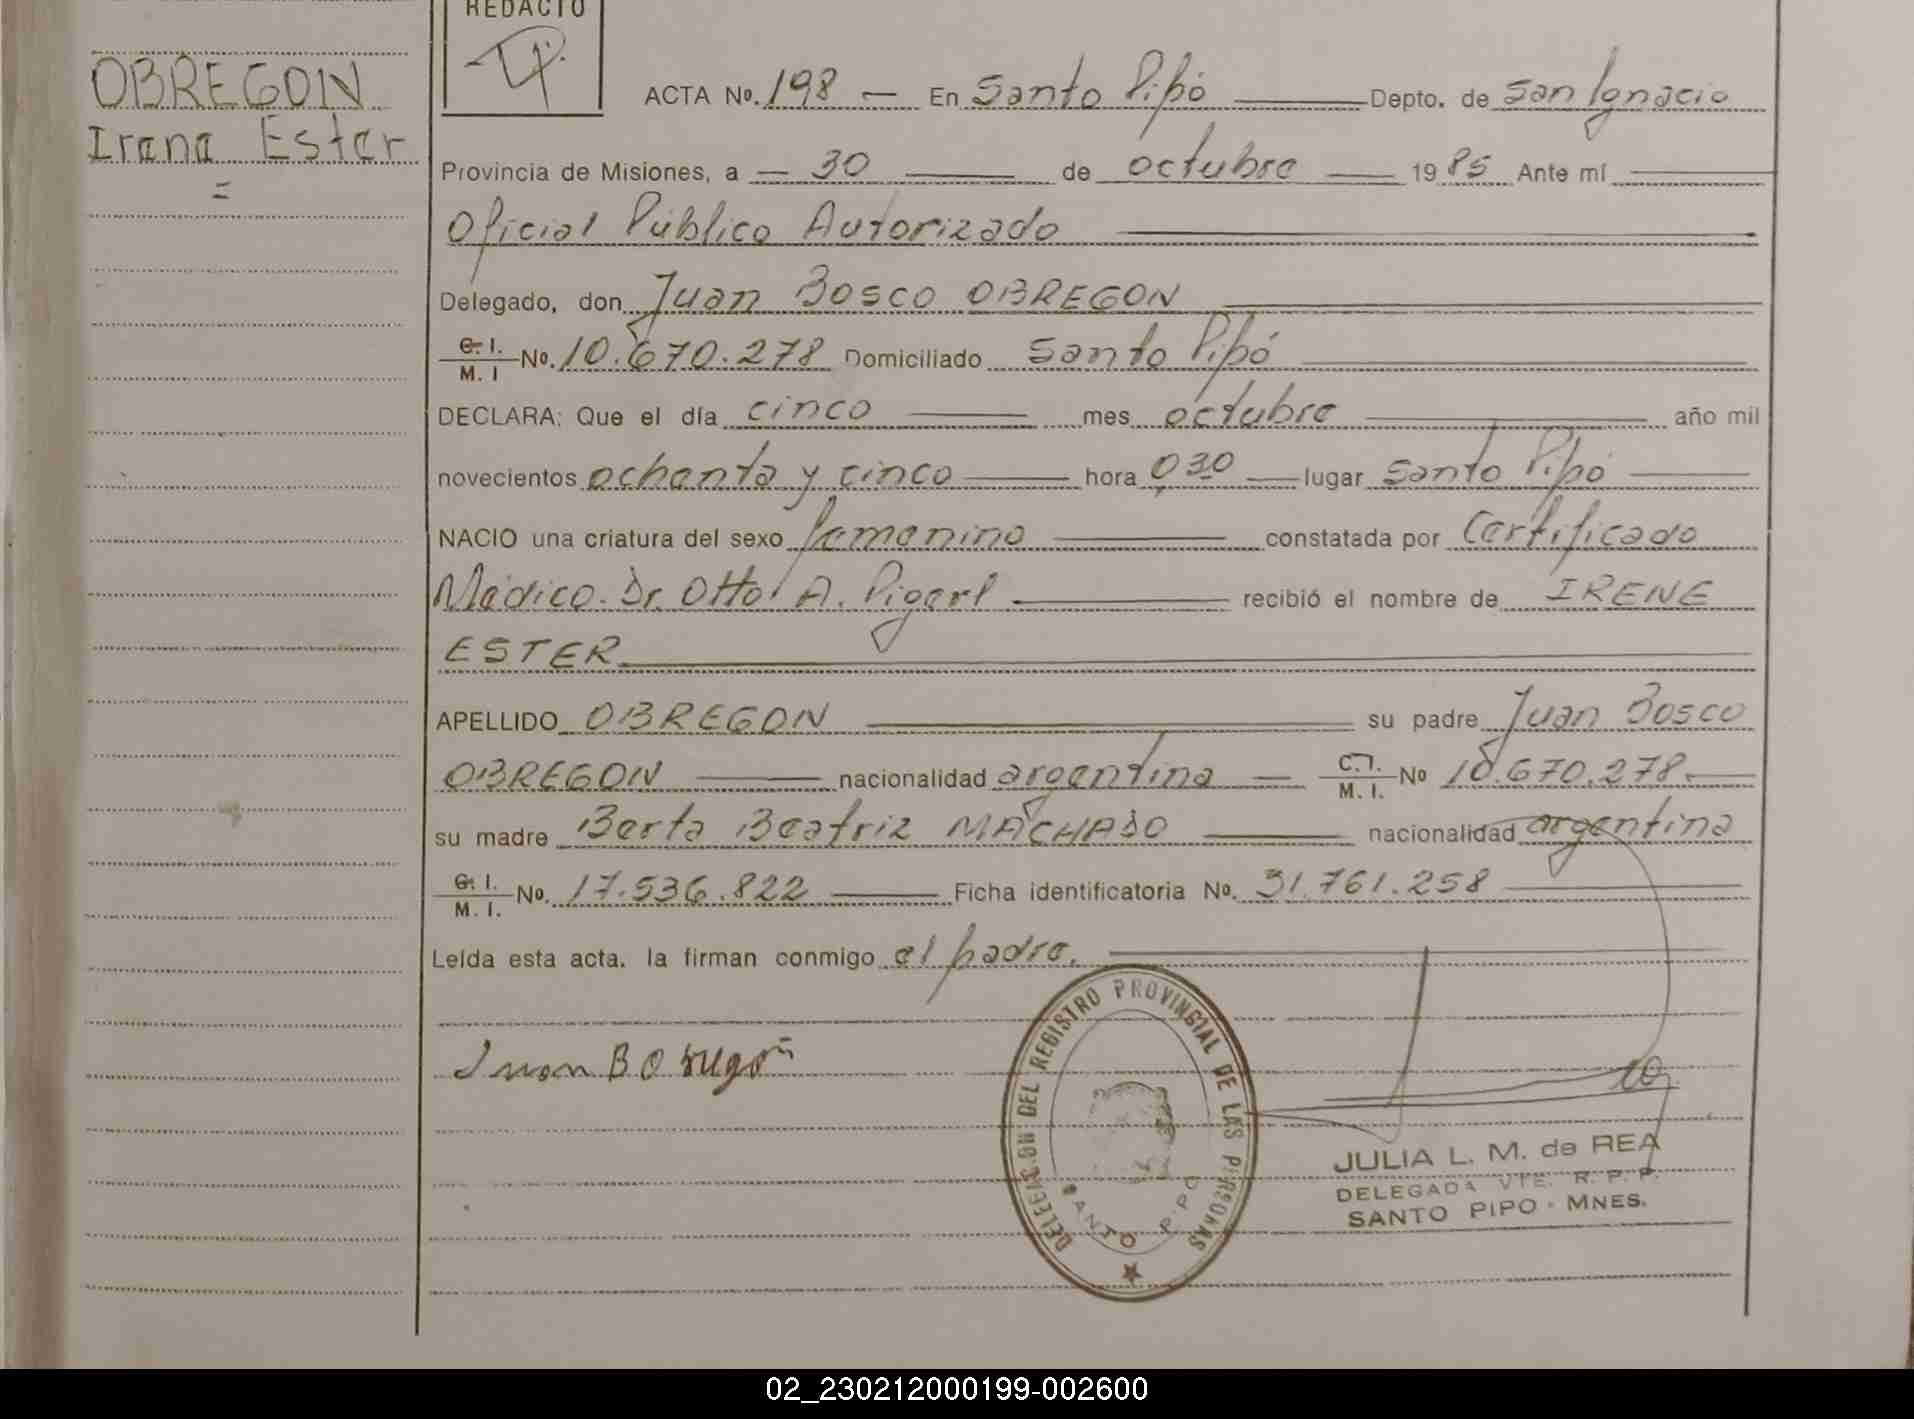 REDACTO
OBREGON
Irene Ester
=
ACTA Nº. 198 — En Santo Pipó — Depto. de San Ignacio
Provincia de Misiones, a — 30 — de octubre — 1985 Ante mí —
Oficial Público Autorizado —
Delegado, don Juan Bosco OBREGON —
C. I. / M. I Nº. 10.670.278 Domiciliado Santo Pipó —
DECLARA: Que el día cinco — mes octubre — año mil
novecientos ochenta y cinco — hora 0,30 — lugar Santo Pipó —
NACIO una criatura del sexo femenino — constatada por Certificado
Médico. Dr. Otto A. Pigerl — recibió el nombre de IRENE
ESTER —
APELLIDO OBREGON — su padre Juan Bosco
OBREGON — nacionalidad argentina — C.I. / M. I. Nº 10.670.278. —
su madre Berta Beatriz MACHADO — nacionalidad argentina
C. I. / M. I. Nº. 17.536.822 — Ficha identificatoria Nº. 31.761.258 —
Leída esta acta. la firman conmigo el padre. —
Juan B Obregón
DELEGACION DEL REGISTRO PROVINCIAL DE LAS PERSONAS
SANTO PIPO
JULIA L. M. de REA
DELEGADA VTE. R. P. P.
SANTO PIPO - MNES.
02_230212000199-002600